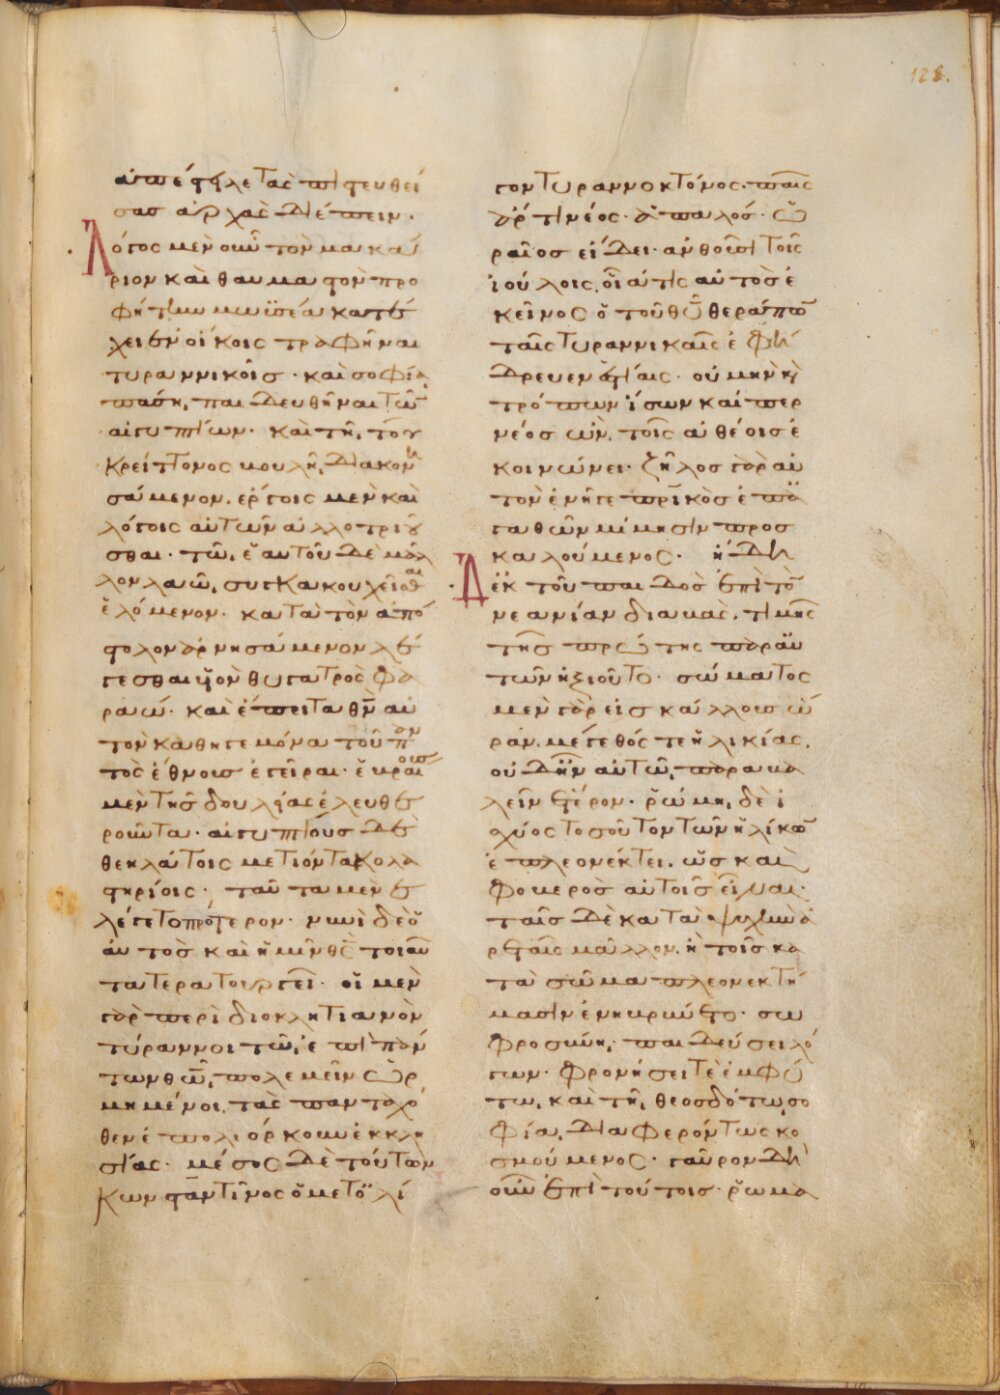 128.
ἀπέστελε τὰς πιστευθεί
σας ἀρχὰς διέπειν.
Λόγος μὲν οὖν τὸν μακά
ριον καὶ θαυμαστὸν προ
φήτην μωϋσέα κατέ
χει ἐν οἴκοις τραφῆναι
τυραννικοῖς· καὶ σοφίᾳ
πάσῃ, παιδευθῆναι τῶν
αἰγυπτίων· καὶ τῇ, τοῦ
κρείττονος βουλῇ, διακονη
σάμενον. ἔργοις μὲν καὶ
λόγοις αὐτῶν ἀλλοτριοῦ
σθαι· τῷ, ἑαυτοῦ δὲ μᾶλ
λον λαῷ, συγκακουχεῖσθαι
ἑλόμενον· κατὰ τὸν ἀπό
στολον ἀρνησάμενον λέ
γεσθαι υἱὸν θυγατρὸς φα
ραώ· καὶ ἔπειτα θν αὐ
τὸν καθηγεμόνα τοῦ παν
τὸς ἔθνους ἐγεῖραι· ἑβραίους
μὲν τῆς δουλείας ἐλευθε
ροῦντα· αἰγυπτίους δὲ
θεηλάτοις μετιόντα κολα
στηρίοις· ταῦτα μὲν ἐ
λέγετο πρότερον· νυνὶ δὲ ὁ
αὐτὸς καὶ ἡμῖν θς τοιαῦ
τα τερατουργεῖ· οἱ μὲν
γὰρ περὶ διοκλητιανὸν
τύραννοι τῷ, ἐπὶ πάν
των θῶ, πολεμεῖν ὡρ
μημένοι, τὰς πανταχό
θεν ἐπολιόρκουν ἐκκλη
σίας· μέσος δὲ τούτων
κωνσταντῖνος ὁ μετ' ὀλί
γον τυραννοκτόνος· παῖς
ἄρτι νέος· ἁπαλός· ὡ
ραῖος εἴδει· ἀνθοῦσι τοῖς
ἰούλοις, οἷά τις αὐτὸς ἐ
κεῖνος ὁ τοῦ θῦ θεράπων
ταῖς τυραννικαῖς ἐφή
δρευεν ἑστίαις· οὐ μὴν καὶ
τρόπων ἴσων καίπερ
νέος ὢν, τοῖς ἀθέοις ἐ
κοινώνει· ζῆλος γὰρ αὐ
τὸν ἐνῆγε πρικὸς ἐπ' ἀ
γαθῶν μίμησιν προς
καλούμενος· ἤδη
Δ ἐκ τοῦ παιδὸς ἐπὶ τὸν
νεανίαν διαβάς, τιμῆς
τῆς πρώτης παρ' αὐ
τῶν ἠξιοῦτο· σώματος
μὲν γὰρ εἰς κάλλους ὥ
ραν, μέγεθός τε ἡλικίας,
οὐδ' ἦν αὐτῷ, παραβα
λεῖν ἕτερον· ῥώμῃ, δὲ ἰ
σχύος τοσοῦτον τῶν ἡλίκων
ἐπλεονέκτει, ὡς καὶ
φοβερὸς αὐτοῖς εἶναι·
ταῖς δὲ κατὰ ψυχὴν ἀ
ρεταῖς μᾶλλον, ἢ τοῖς κα
τὰ σῶμα πλεονεκτή
μασιν ἐνηβρύνετο· σω
φροσύνῃ, παιδεύσει λό
γων· φρονήσει τὲ ἐμφύ
τῳ, καὶ τῇ, θεοσδότῳ, σο
φίᾳ, διαφερόντως κο
σμούμενος· γαῦρον δὴ
οὖν ἐπὶ τούτοις· ῥωμα